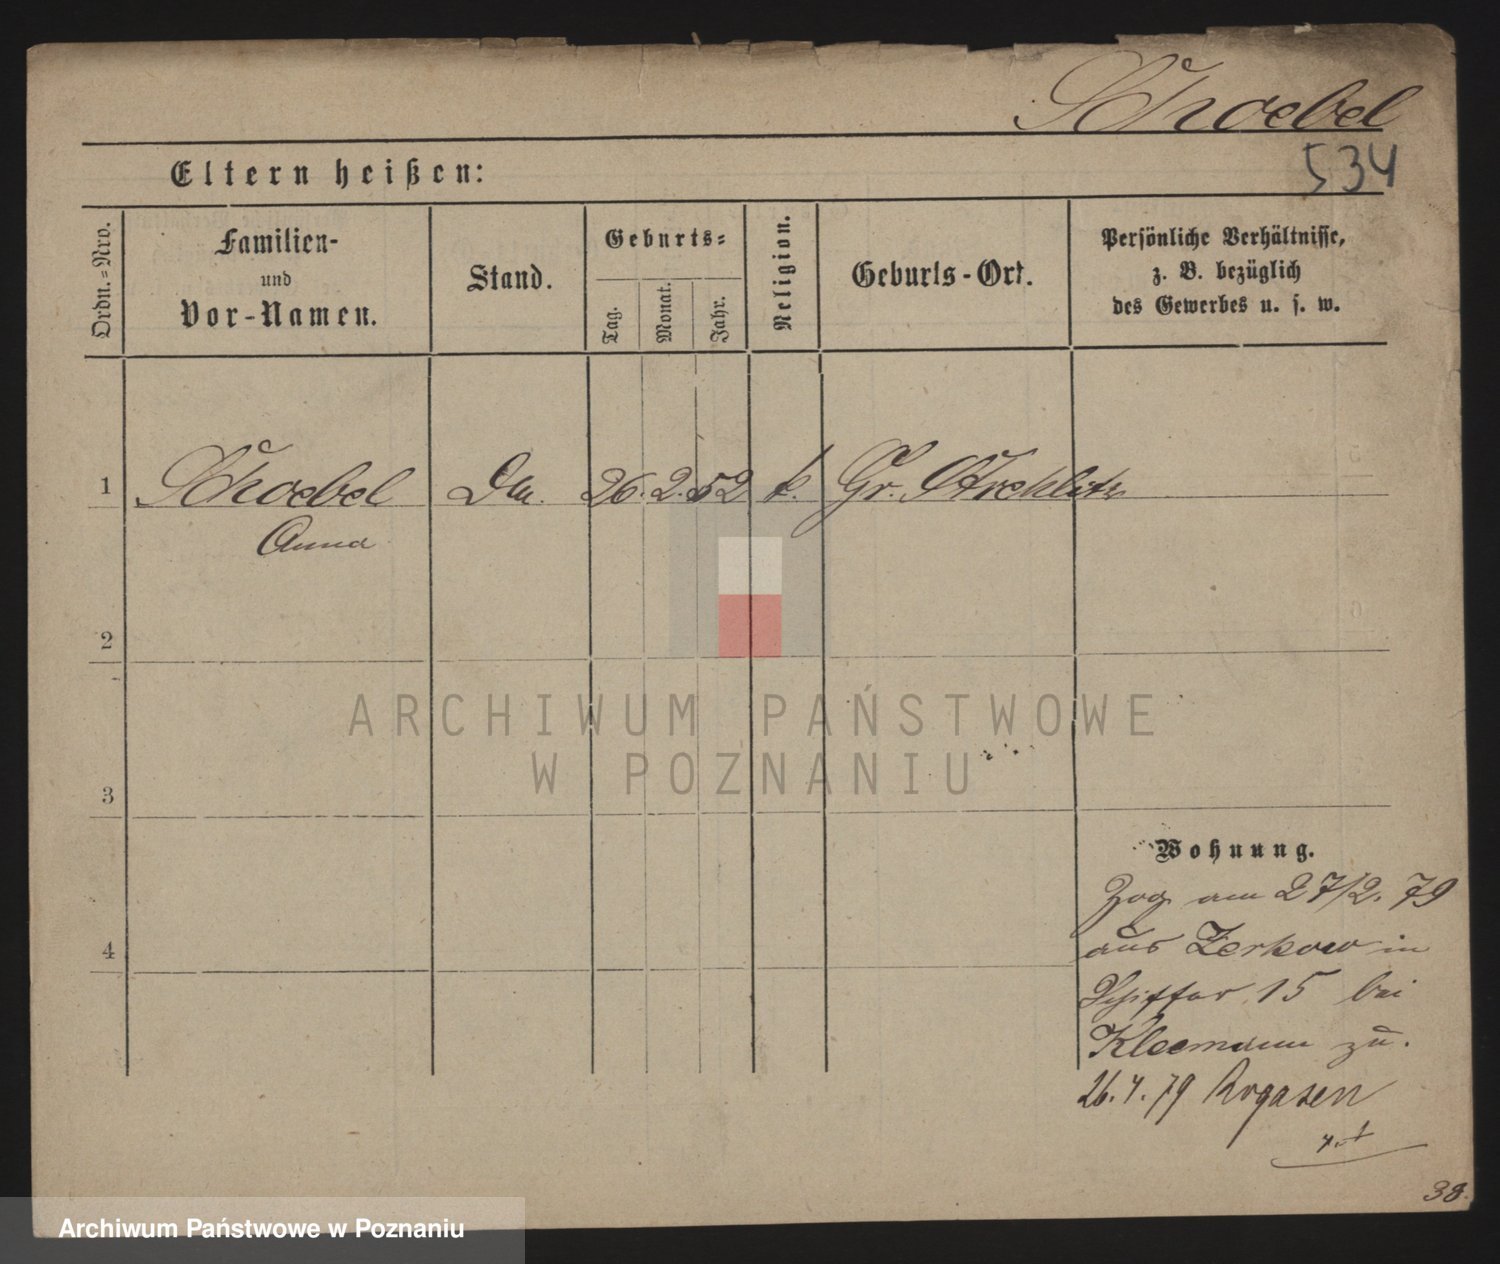 Schoebel
534
Eltern heißen:
Ordn.=Nro.
Familien-
und
Vor-Namen.
Stand.
Geburts=
Tag.
Monat.
Jahr.
Religion.
Geburts-Ort.
Persönliche Verhältnisse,
z. B. bezüglich
des Gewerbes u. s. w.
1 Schoebel 26. 2. 52 k. Gr. Strehlitz
Anna
2
ARCHIWUM PAŃSTWOWE
W POZNANIU
3
Wohnung.
Zog am 27/2. 79
aus Zerkow in
Schiffer 15 bei
Kleemann zu.
4
26. 4. 79 Rogasen
38.
Archiwum Państwowe w Poznaniu